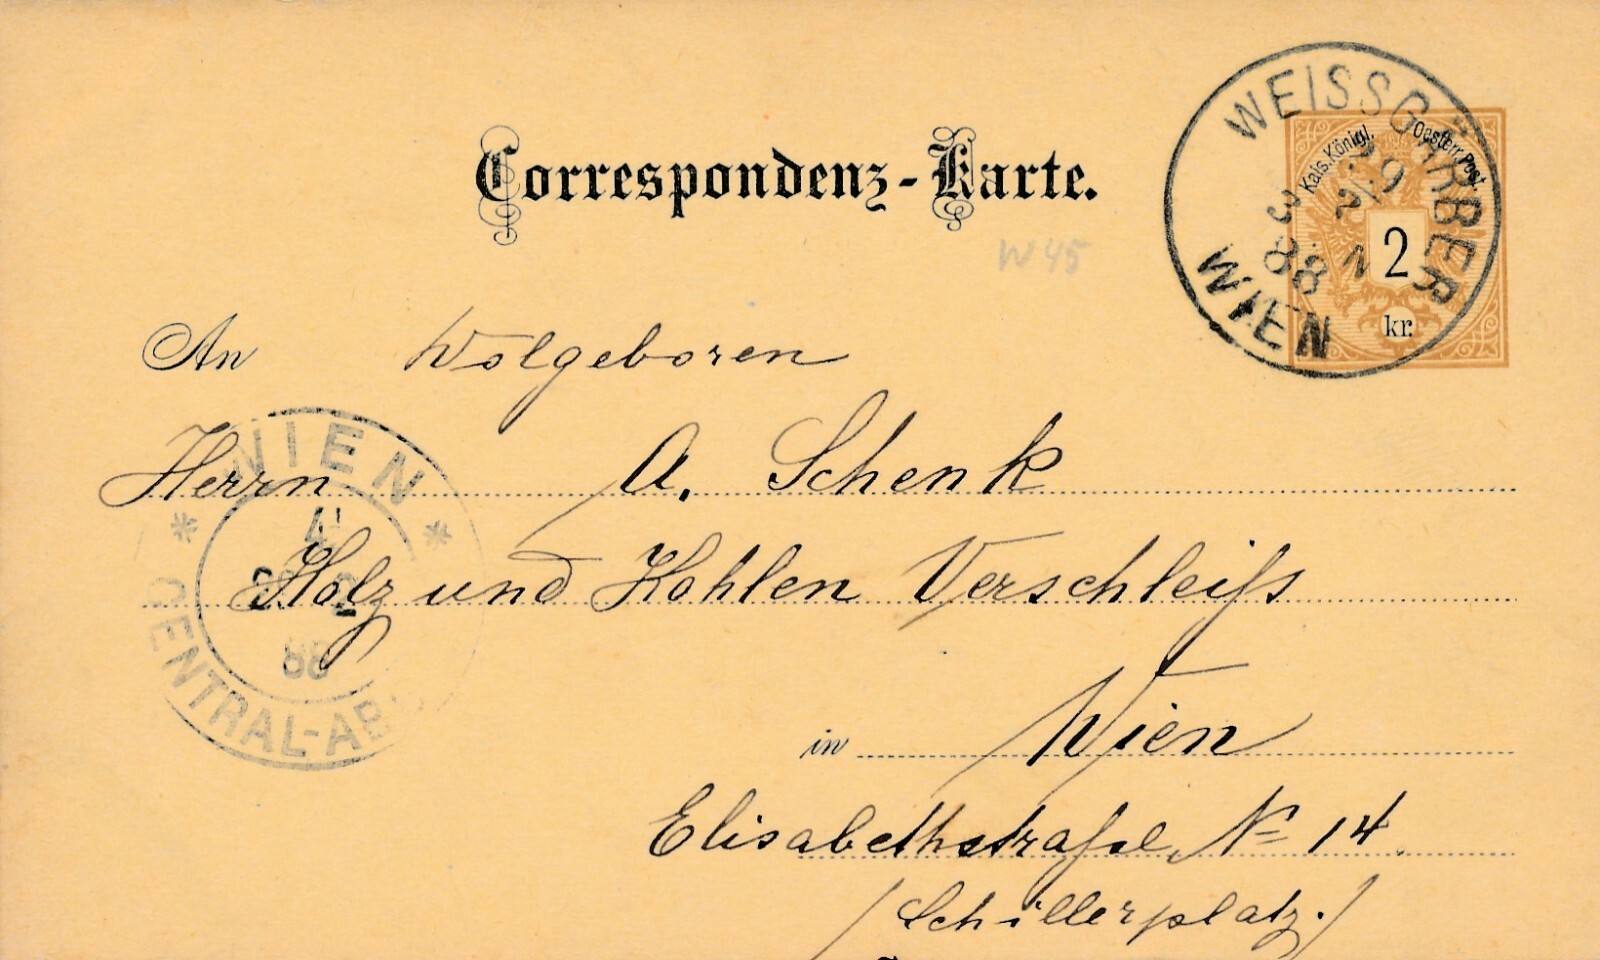 Correspondenz-Karte.
WEISSGÄRBER
WIEN
29/2
3 N
88
Kais. Königl. Oesterr. Post.
2
kr.
W 45
An Wolgeboren
Herrn A. Schenk
Holz und Kohlen Verschleiſs
in Wien
Elisabethstraſse, No 14.
/Schillerplatz./
WIEN
4
88
CENTRAL-AB